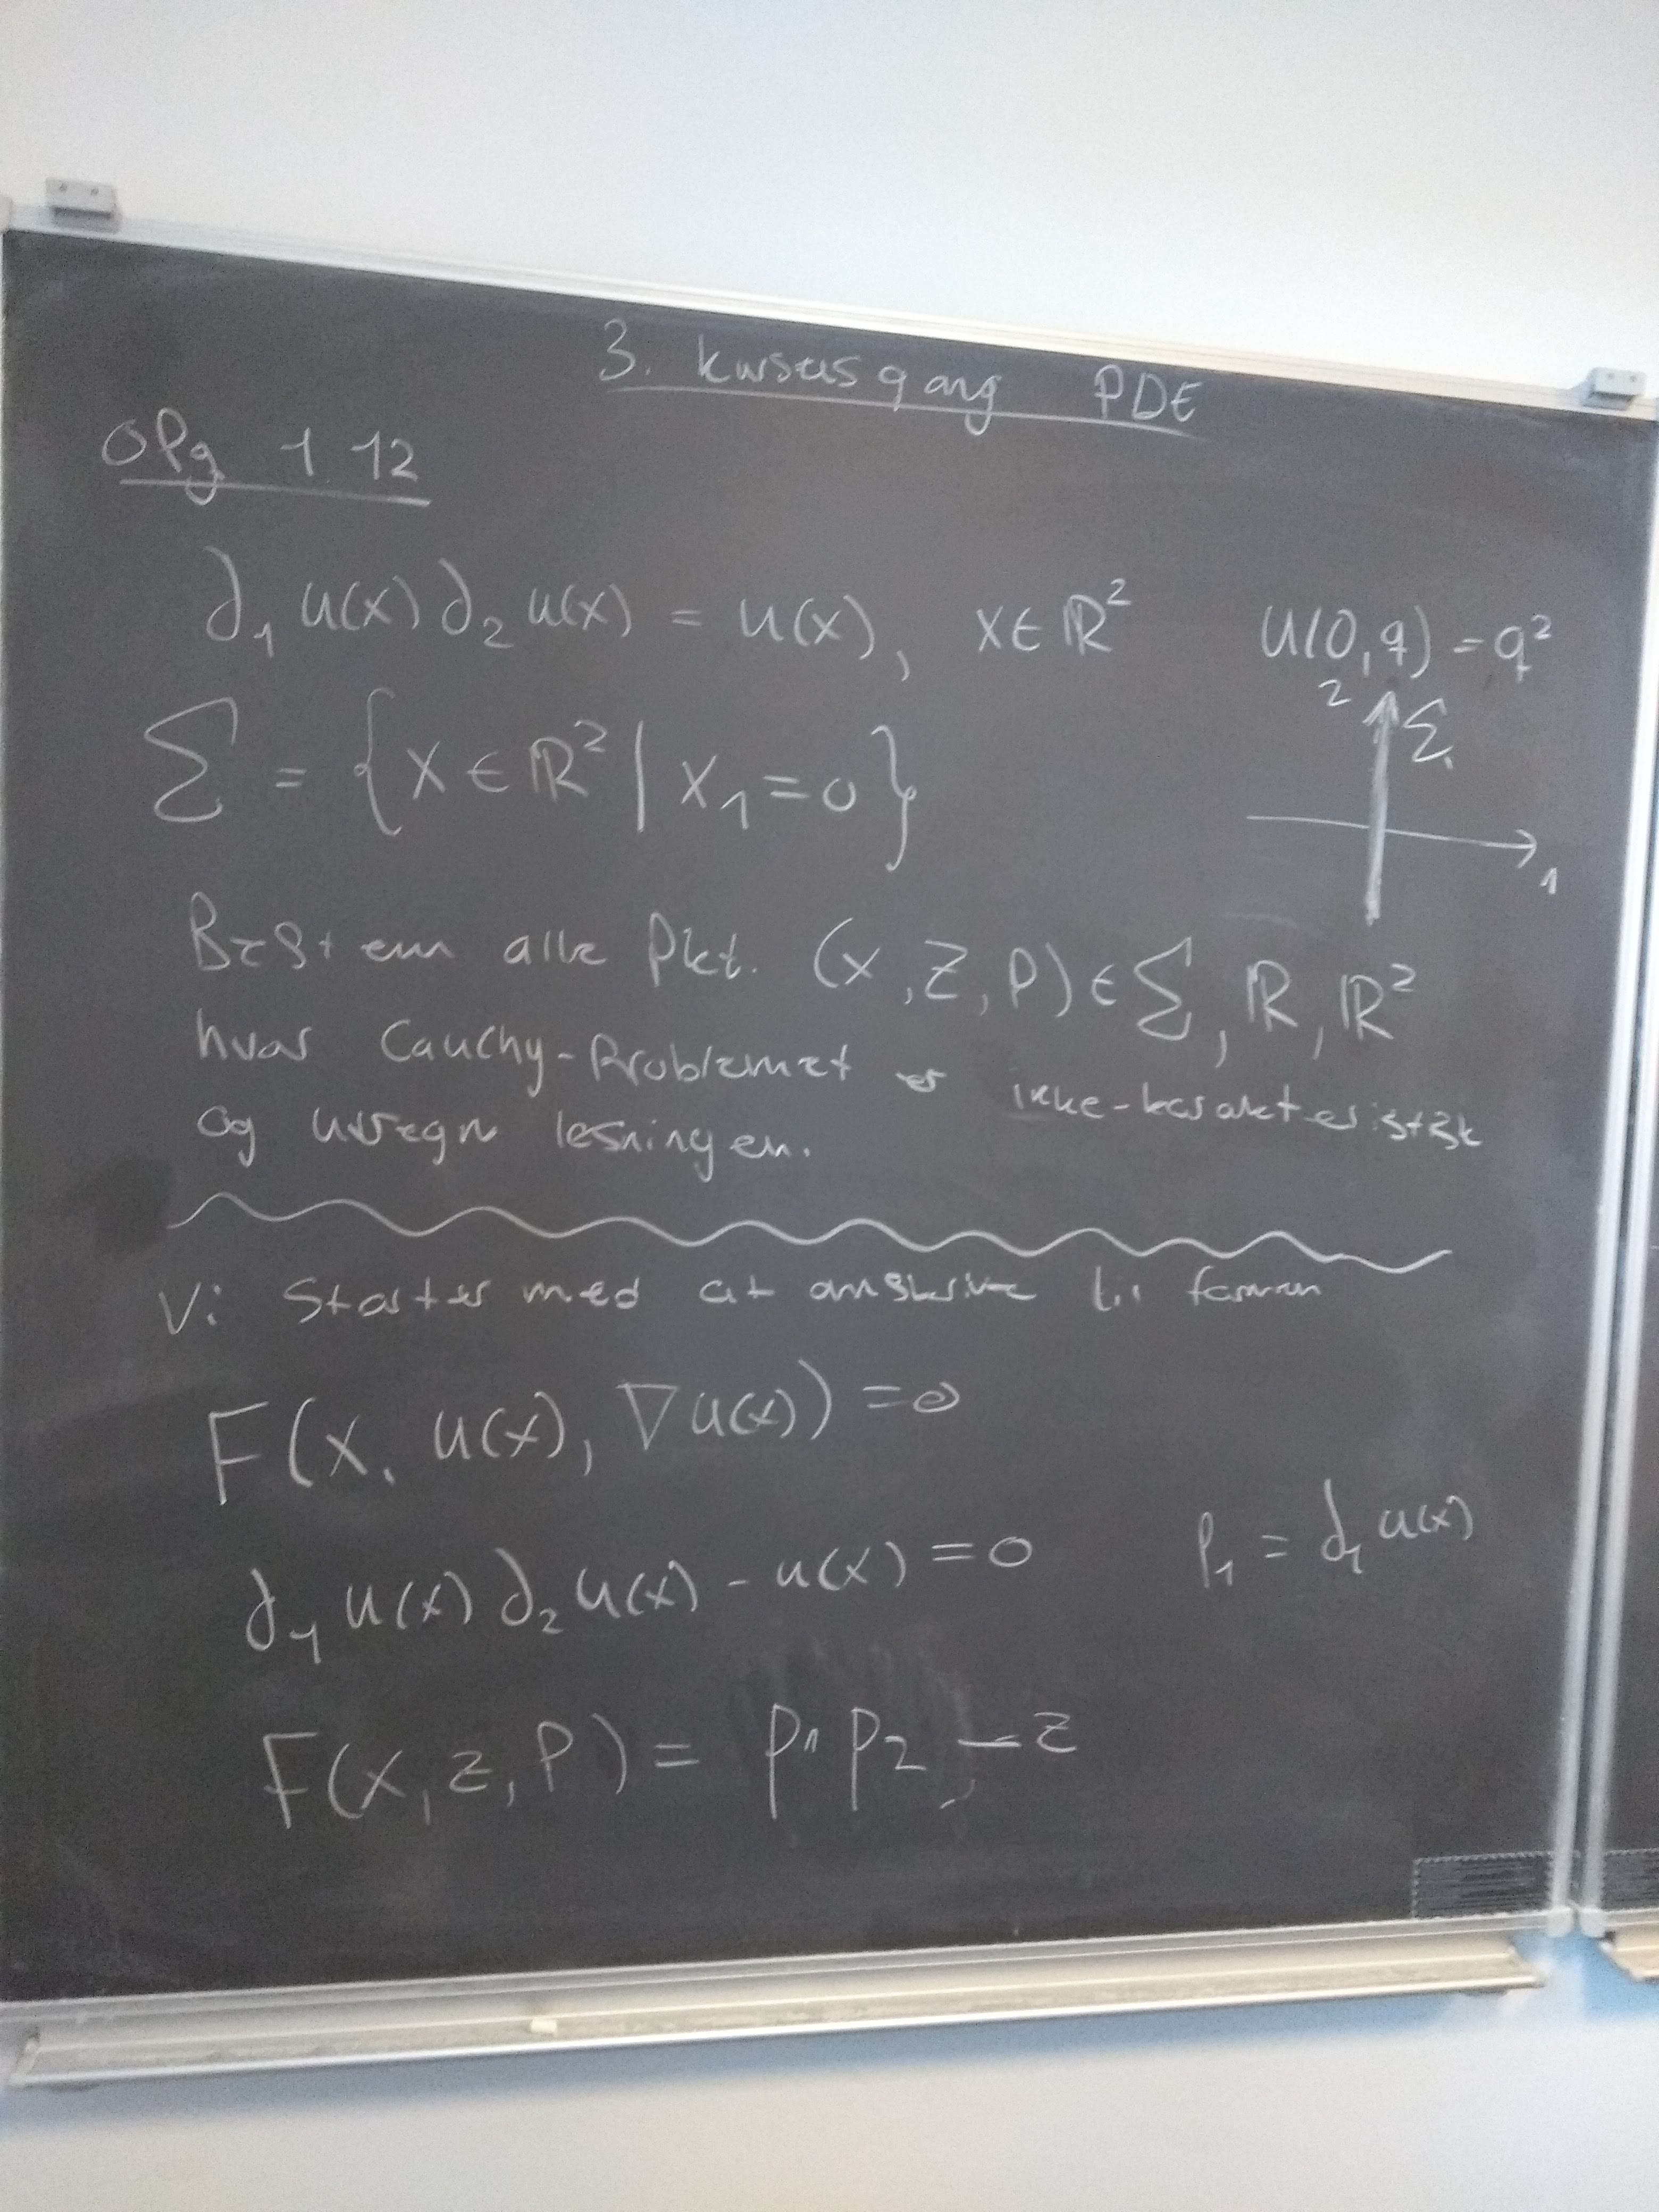 3. kursusgang PDE
Opg 1.12
∂₁ u(x) ∂₂ u(x) = u(x), x ∈ ℝ²
u(0,q) = q²
2
Σ
1
Σ = {x ∈ ℝ² | x₁ = 0}
Bestem alle Pkt. (x, z, p) ∈ Σ, ℝ, ℝ²
hvor Cauchy-Problemet er ikke-karakteristisk
og udregn løsningen.
Vi Starter med at omskrive til formen
F(x, u(x), ∇u(x)) = 0
∂₁ u(x) ∂₂ u(x) - u(x) = 0
p₁ = ∂₁ u(x)
F(x, z, p) = p₁ p₂ - z